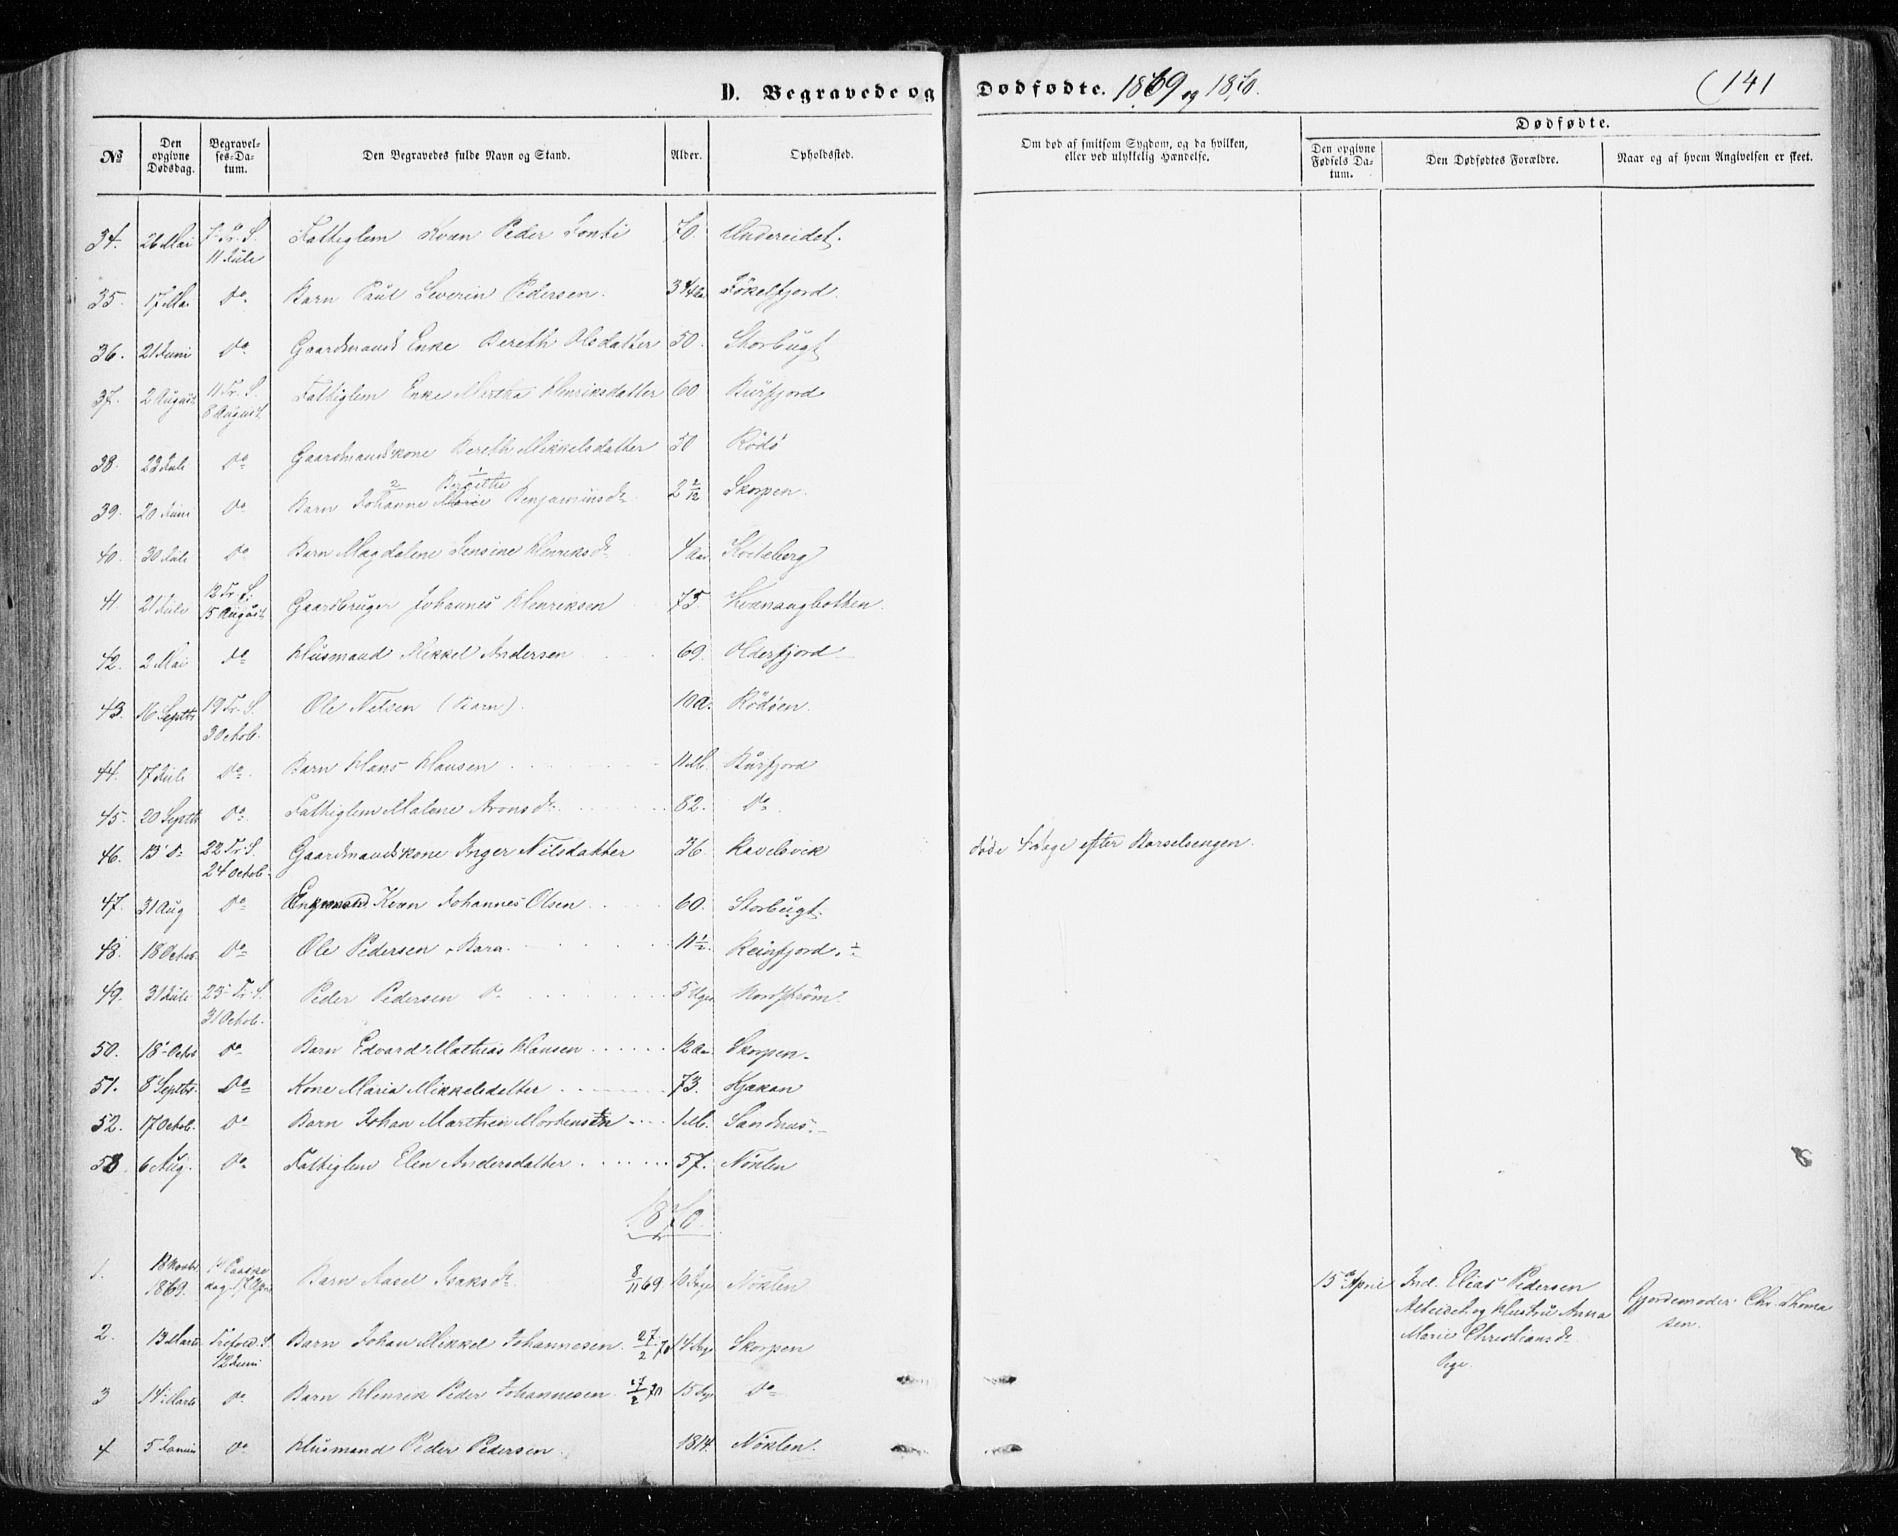 D. Begravede og Dødfødte. 1869 og 1870. 141
№ Den opgivne Dødsdag. Begravelses-Datum. Den Begravedes fulde Navn og Stand. Alder. Opholdssted. Om død af smitsom Sygdom, og da hvilken, eller ved ulykkelig Hændelse. Dødfødte. Den opgivne Fødsels Datum. Den Dødfødtes Forældre. Naar og af hvem Angivelsen er skeet.
34. 26 Mai 7. Tr. S. 11 Juli Fattiglem Kvæn Peder 70.
35. 17 Mai Do Barn Paul Severin Pedersen. Jøkelfjord.
36. 21 Juni Do Gaardmands Enke Bereth Olsdatter 50. Storbugt
37. 2 August 11 Tr. S. 8 August. Fattiglem Enke Henriksdatter 60 Burfjord
38. 23 Juli Do Gaardmandskone Bereth Mikkelsdatter 50 Rødø
39. 20 Juni Do Barn Johanne Marie Bergithe Benjaminsdr 2 2/12 Skorpen.
40. 30 Juli Do Barn Magdalene Jensine Henriksdr 4 Aar
41. 21 Juli 12 Tr. S. 15 August Gaardbruger Johannes Henriksen 75. Kvænangbotten.
42. 2 Mai Do Husmand Mikkel Andersen 69. Olderfjord
43. 16 Septbr 19 Tr. S. 3 Octob. Ole Nilsen (Barn). 10 A. Rødøen.
44. 17 Juli Do Barn Hans Hansen 11 M. Burfjord
45. 20 Septbr Do Fattiglem Malene Aronsdr 82. Do
46. 13 Do 22 Tr. S. 24 Octob. Gaardmandskone Inger Nilsdatter 36. Ravelsvik døde 4 dage efter Barselsengen.
47. 31 Aug Do Kvæn Johannes Olsen 60. Storbugt.
48. 18 Octob. Do Ole Pedersen, Barn. 11 1/2. Reinfjord.
49. 31 Juli 23 Tr. S. 31 Octob. Peder Pedersen Do 5 Uger Nordstrøm.
50. 18 Octob Do Barn Edvard Mathias Hansen 12 Aar Skorpen.
51. 8 Septbr. Do Kone Maria Mikkelsdatter 73. Kjækan
52. 17 Octob. Do Barn Johan Marthin Mortensen 1 M. Sandnes.
53 6 Aug. Do Fattiglem Elen Andersdatter 57. Nøklen
1870.
1. 18 Novbr 1869. Paaskedag 17 April Barn Aasel Isaksdr 8/11 69 10 Dage Nøklen 15 April Ind. Elias Pedersen
Alteidet og Hustru Anna Gjordemoder Chr. Thomasen.
2. 13 Marts Trefold. S. 12 Juni Barn Johan Mikkel Johannesen. 27/2 70 14 Dge Skorpen Marie Christiansdr
Pige.
3 14 Marts Do Barn Henrik Peder Johannesen 27/2 70 15 Dge Do
4 5 Do Husmand Peder Pedersen. 1814. Nøklen.